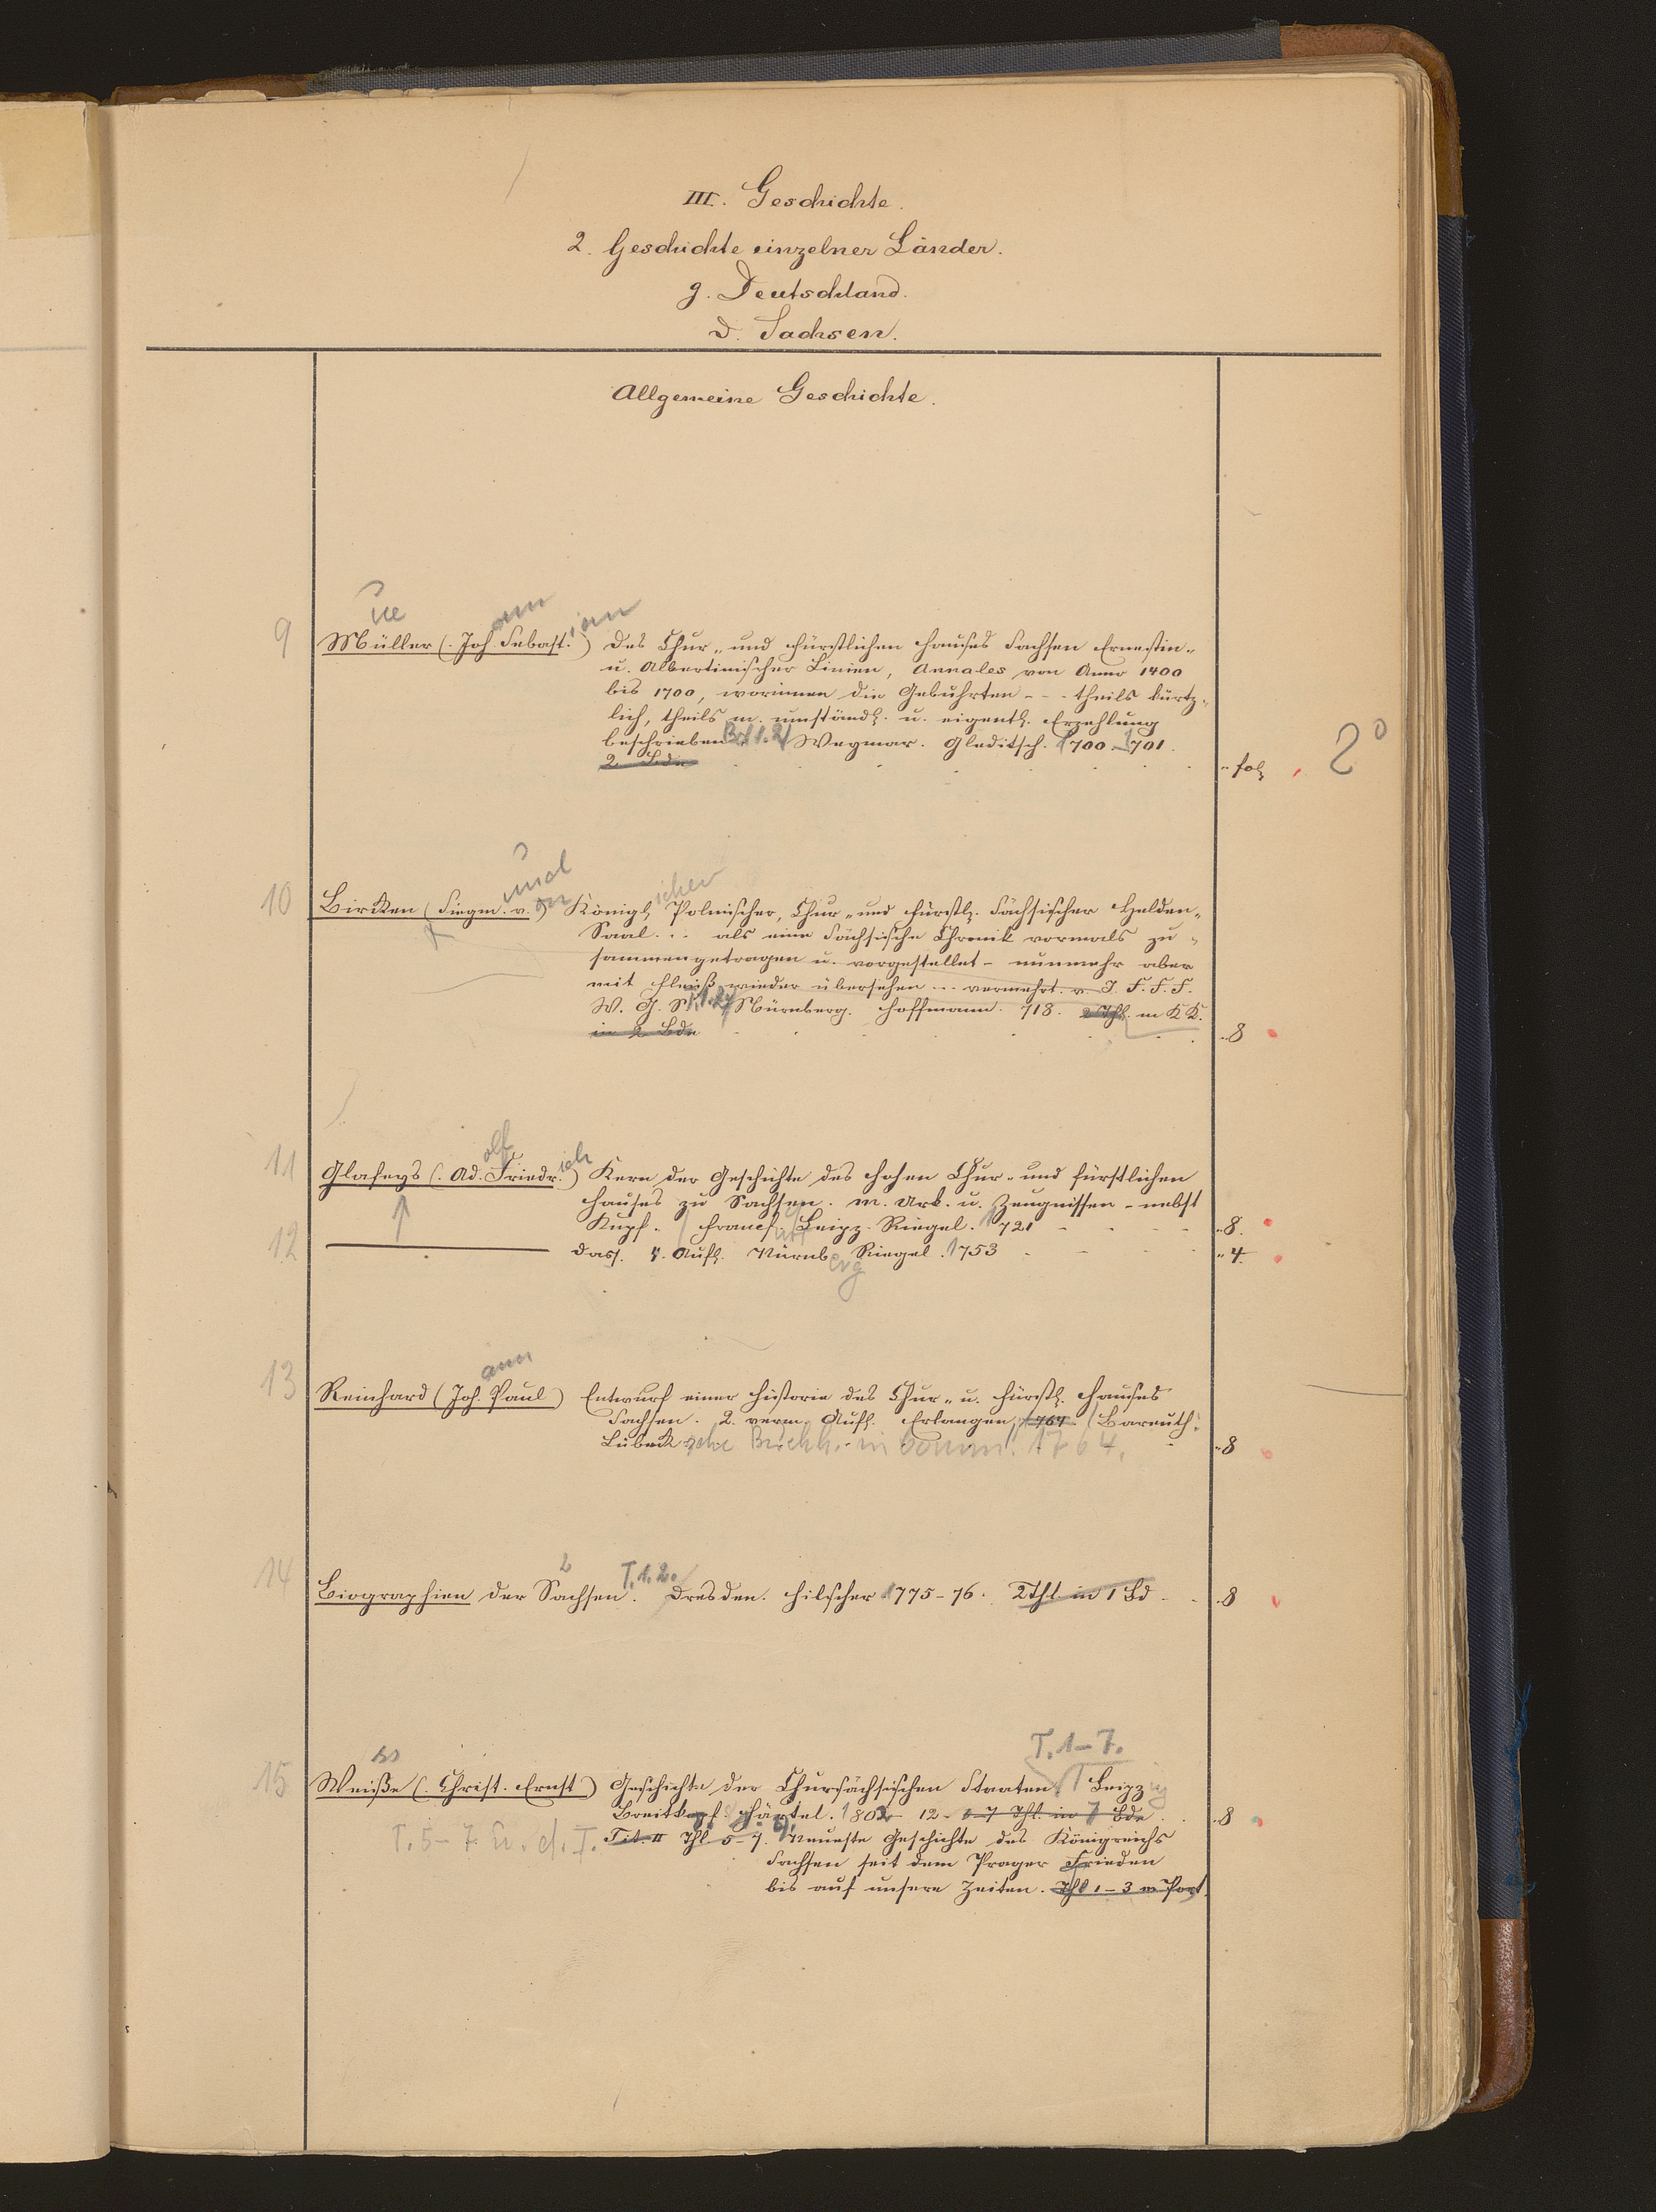 III. Geschichte.
2. Geschichte einzelner Länder.
g. Deutschland.
d. Sachsen.
Allgemeine Geschichte.
ue ann ian
9 Müller (Joh. Sebast.) Des Chur- und Fürstlichen Hauses Sachsen Ernestin-
u. Albertinischer Linien, Annales von Anno 1400
bis 1700, worinnen die Gebuhrten - - - theils kürtz-
lich, theils m. umständl. u. eigentl. Erzehlung
beschrieben Bd 1.2 Weymar. Gleditsch. 1700-1701.
2 Bde „ fol. 2°
und ichen
10 Bircken (Siegm. v. on) Königl. Polnischer, Chur- und Fürstl. Sächsischer Helden-
Saal ... als eine Sächsische Chronik vormals zu-
sammengetragen u. vorgestellet - nunmehr aber
mit Fleiß wieder übersehen ... vermehrt v. J. F. F. F.
W. G. S. T. 1.2 Nürnberg. Hoffmann. 718. 2 Thl. m KK.
in 2 Bde „ 8
olf ich
11 Glafeys (Ad. Friedr.) Kern der Geschichte des Hohen Chur- und Fürstlichen
Hauses zu Sachsen. m. Urk. u. Zeugnissen - nebst
Kupf. Francf. urt Leipz. Riegel. 1721 „ 8.
12 dass. 4. Aufl. Nürnb erg Riegel. 1753 „ 4.
ann
13 Reinhard (Joh. Paul) Entwurf einer Historie des Chur- u. Fürstl. Hauses
Sachsen. 2. verm. Aufl. Erlangen, 764. Bareuth:
Lübeck sche Buchh. in Comm. 1764. „ 8
T. 1.2.
14 Biographien der Sachsen. Dresden. Hilscher 1775-76. 2 Thl. in 1 Bd „ 8
ss T. 1-7.
15 Weiße (Christ. Ernst) Geschichte der Chursächsischen Staaten. Leipz ig
Breitkopf. Härtel. 1802-12. 1-7 Thl. in 7 Bde. „ 8
T. 5-7 u. d. T. Tit. II Thl 5-7. Neueste Geschichte des Königreichs
Sachsen seit dem Prager Frieden
bis auf unsere Zeiten. Thl 1-3 m Port.